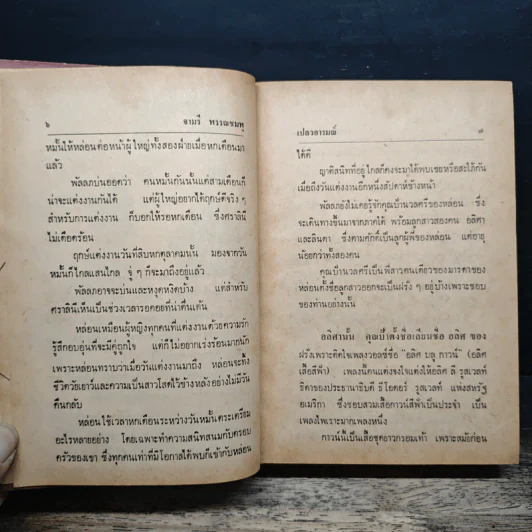 ๖
จามรี พรรณชมพู
หมั้นให้หล่อนต่อหน้าผู้ใหญ่ทั้งสองฝ่ายเมื่อหกเดือนมา
แล้ว
พัลลภบ่นออดว่า คนหมั้นกันนั้นแค่สามเดือนก็
น่าจะแต่งงานกันได้ แต่ผู้ใหญ่อยากได้ฤกษ์ดีจริง ๆ
สำหรับการแต่งงาน ก็บอกให้รอหกเดือน ซึ่งศราลินี
ไม่เดือดร้อน
ฤกษ์แต่งงานวันที่สิบหกตุลาคมนั้น มองจากวัน
หมั้นก็ไกลแสนไกล จู่ ๆ ก็จะมาถึงอยู่แล้ว
พัลลภอาจจะบ่นและหงุดหงิดบ้าง แต่สำหรับ
ศราลินีเห็นเป็นช่วงเวลารอคอยที่น่าตื่นเต้น
หล่อนเหมือนผู้หญิงทุกคนที่แต่งงานด้วยความรัก
รู้สึกอบอุ่นที่จะมีคู่ถูกใจ แต่ก็ไม่อยากเร่งร้อนมากนัก
เพราะหล่อนทราบว่าเมื่อวันแต่งงานมาถึง หล่อนจะทิ้ง
ชีวิตวัยเยาว์และความเป็นสาวโสดไว้ข้างหลังอย่างไม่มีวัน
คืนกลับ
หล่อนใช้เวลาหกเดือนระหว่างวันหมั้นตระเตรียม
อะไรหลายอย่าง โดยเฉพาะทำความสนิทสนมกับครอบ
ครัวของเขา ซึ่งทุกคนเท่าที่มีโอกาสได้พบก็เข้ากับหล่อน
เปลวอารมณ์
๗
ได้ดี
ญาติสนิทที่อยู่ไกลก็คงจะมาได้พบเธอหรือสะใภ้กัน
เมื่อถึงวันแต่งงานอีกหนึ่งสัปดาห์ข้างหน้า
พัลลภยังไม่เคยรู้จักคุณป้านวลศรีของหล่อน ซึ่ง
จะเดินทางขึ้นมาจากภาคใต้ พร้อมลูกสาวสองคน อลิศา
และลินดา ซึ่งตามศักดิ์เป็นลูกผู้พี่ของหล่อน แต่อายุ
น้อยกว่าทั้งสองคน
คุณป้านวลศรีเป็นพี่สาวคนเดียวของมารดาของ
หล่อนตั้งชื่อลูกสาวออกจะเป็นฝรั่ง ๆ อยู่บ้างเพราะชอบ
ของท่านอย่างนั้น
อลิศานั้น คุณป้าตั้งชื่อเลียนชื่อ อลิศ ของ
ฝรั่งเพราะติดใจเพลงวอลซ์ชื่อ “อลิศ บลู กาวน์” (อลิศ
เสื้อสีฟ้า) เพลงนี้คนแต่งจงใจแต่งให้อลิศ ลี รูสเวลท์
ธิดาของประธานาธิบดี ธิโอดอร์ รูสเวลท์ แห่งสหรัฐ
อเมริกา ซึ่งชอบสวมเสื้อกาวน์สีฟ้าเป็นประจำ เป็น
เพลงไพเราะมากเพลงหนึ่ง
กาวน์นี้เป็นเสื้อชุดยาวกรอมเท้า เพราะสมัยก่อน